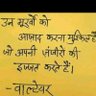 उन मूर्खों को
आज़ाद करना मुश्किल है
जो अपनी जंजीरों की
इज्जत करते हैं।
- वाल्टेयर